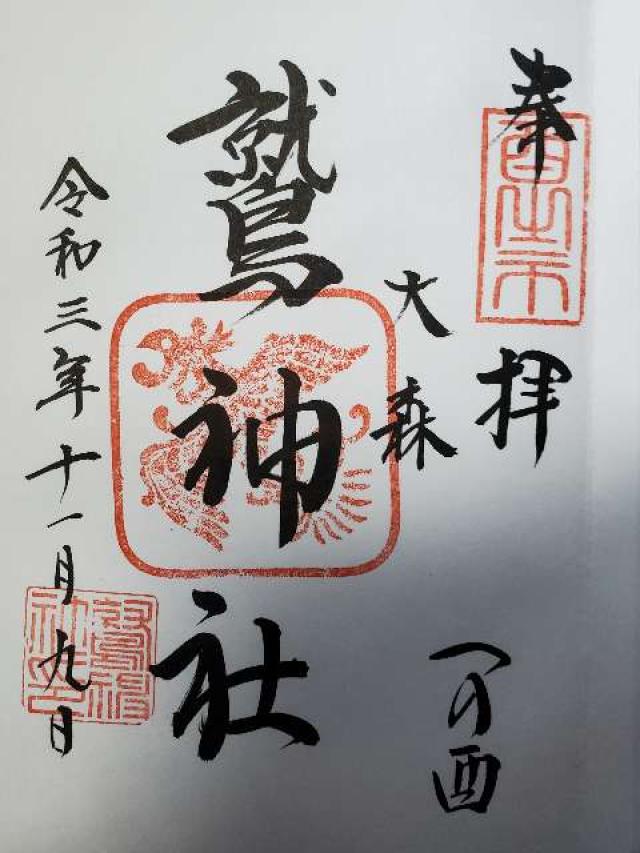 奉拝
一の酉
大森
鷲神社
令和三年十一月九日